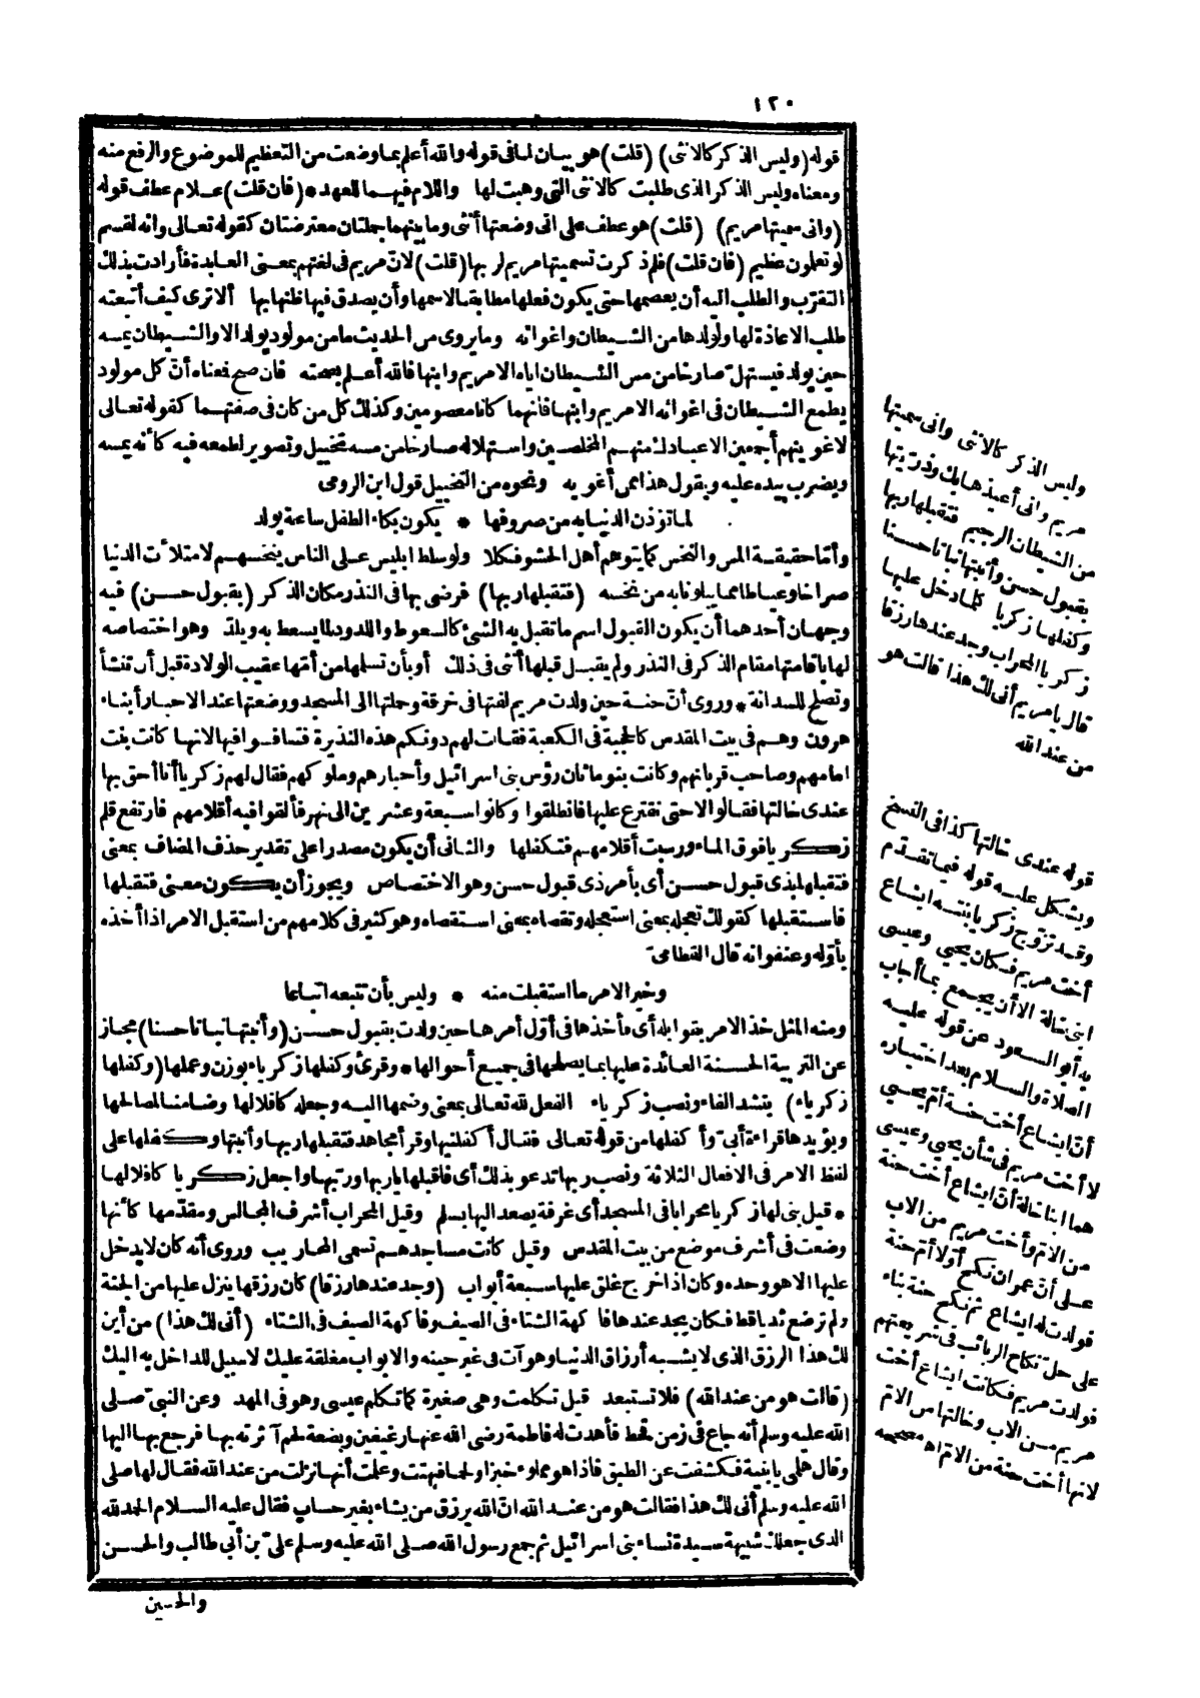 ١٢٠
قوله (وليس الذكر كالانثى) (قلت) هو بيان لما فى قوله والله أعلم بما وضعت من التعظيم للموضوع والرفع منه
ومعناه وليس الذكر الذى طلبت كالانثى التى وهبت لها واللام فيهما للعهد * (فان قلت) علام عطف قوله
(وانى سميتها مريم) (قلت) هو عطف على انى وضعتها أنثى وما بينهما جملتان معترضتان كقوله تعالى وانه لقسم
لو تعلمون عظيم (فان قلت) فلم ذكرت تسميتها مريم لربها (قلت) لان مريم فى لغتهم بمعنى العابدة فأرادت بذلك
التقرّب والطلب اليه أن يعصمها حتى يكون فعلها مطابقا لاسمها وأن يصدق فيها ظنها بها ألا ترى كيف أتبعته
طلب الاعاذة لها ولولدها من الشيطان واغوائه وما يروى من الحديث ما من مولود يولد الا والشيطان يمسه
حين يولد فيستهلّ صارخا من مس الشيطان اياه الا مريم وابنها فالله أعلم بصحته فان صح فمعناه أنّ كل مولود
يطمع الشيطان فى اغوائه الا مريم وابنها فانهما كانا معصومين وكذلك كل من كان فى صفتهما كقوله تعالى
لاغوينهم أجمعين الا عبادك منهم المخلصين واستهلاله صارخا من مسه تخييل وتصوير لطمعه فيه كأنه يمسه
ويضرب بيده عليه ويقول هذا ممن أغويه ونحوه من التخييل قول ابن الرومى
لما تؤذن الدنيا به من صروفها * يكون بكاء الطفل ساعة يولد
وأمّا حقيقة المس والنخس كما يتوهم أهل الحشو فكلا ولو سلط ابليس على الناس ينخسهم لامتلأت الدنيا
صراخا وعياطا مما يبلونا به من نخسه (فتقبلها ربها) فرضى بها فى النذر مكان الذكر (بقبول حسن) فيه
وجهان أحدهما أن يكون القبول اسم ما تقبل به الشئ كالسعوط واللدود لما يسعط به ويلدّ وهو اختصاصه
لها باقامتها مقام الذكر فى النذر ولم يقبل قبلها أنثى فى ذلك أو بأن تسلمها من أمّها عقيب الولادة قبل أن تنشأ
وتصلح للسدانة * وروى أنّ حنة حين ولدت مريم لفتها فى خرقة وحملتها الى المسجد ووضعتها عند الاحبار أبناء
هرون وهم فى بيت المقدس كالحجبة فى الكعبة فقالت لهم دونكم هذه النذيرة فتنافسوا فيها لانها كانت بنت
امامهم وصاحب قربانهم وكانت بنو ماثان رؤس بنى اسرائيل وأحبارهم وملوكهم فقال لهم زكريا أنا أحق بها
عندى خالتها فقالوا لا حتى نقترع عليها فانطلقوا وكانوا سبعة وعشرين الى نهر فألقوا فيه أقلامهم فارتفع قلم
زكريا فوق الماء ورسبت أقلامهم فتكفلها والثانى أن يكون مصدرا على تقدير حذف المضاف بمعنى
فتقبلها بذى قبول حسن أى بأمر ذى قبول حسن وهو الاختصاص ويجوز أن يكون معنى فتقبلها
فاستقبلها كقولك تعجله بمعنى استعجله وتقصاه بمعنى استقصاه وهو كثير فى كلامهم من استقبل الامر اذا أخذه
بأوّله وعنفوانه قال القطامىّ
وخير الامر ما استقبلت منه * وليس بأن تتبعه اتباعا
ومنه المثل خذ الامر بقوابله أى فأخذها فى أوّل أمرها حين ولدت بقبول حسن (وأنبتها نباتا حسنا) مجاز
عن التربية الحسنة العائدة عليها بما يصلحها فى جميع أحوالها * وقرئ وكفلها زكرياء بوزن وعملها (وكفلها
زكرياء) بتشد الفاء ونصب زكرياء الفعل لله تعالى بمعنى وضمها اليه وجعله كافلا لها وضامنا لمصالحها
ويؤيدها قراءة أبىّ وأكفلها من قوله تعالى فقال أكفلنيها وقرأ مجاهد فتقبلها ربها وأنبتها وكفلها على
لفظ الامر فى الافعال الثلاثة ونصب ربها تدعو بذلك أى فاقبلها ياربها وربها واجعل زكريا كافلا لها
* قيل بنى لها زكريا محرابا فى المسجد أى غرفة يصعد اليها بسلم وقيل المحراب أشرف المجالس ومقدّمها كأنها
وضعت فى أشرف موضع من بيت المقدس وقيل كانت مساجدهم تسمى المحاريب وروى أنه كان لا يدخل
عليها الا هو وحده وكان اذا خرج غلق عليها سبعة أبواب (وجد عندها رزقا) كان رزقها ينزل عليها من الجنة
ولم ترضع ثديا قط فكان يجد عندها فاكهة الشتاء فى الصيف وفاكهة الصيف فى الشتاء (أنى لك هذا) من أين
لك هذا الرزق الذى لا يشبه أرزاق الدنيا وهو آت فى غير حينه والابواب مغلقة عليك لا سبيل للداخل به اليك
(قالت هو من عند الله) فلا تستبعد قيل تكلمت وهى صغيرة كما تكلم عيسى وهو فى المهد وعن النبىّ صلى
الله عليه وسلم أنه جاع فى زمن قحط فأهدت له فاطمة رضى الله عنها رغيفين وبضعة لحم آثرته بها فرجع بها اليها
وقال هلمى يا بنية فكشفت عن الطبق فاذا هو مملوء خبزا ولحما فبهتت وعلمت أنها نزلت من عند الله فقال لها صلى
الله عليه وسلم أنى لك هذا فقالت هو من عند الله انّ الله يرزق من يشاء بغير حساب فقال عليه السلام الحمد لله
الذى جعلك شبيهة سيدة نساء بنى اسرائيل ثم جمع رسول الله صلى الله عليه وسلم علىّ بن أبى طالب والحسن
والحسين
وليس الذكر كالانثى وانى سميتها
مريم وانى أعيذها بك وذرّيتها
من الشيطان الرجيم فتقبلها ربها
بقبول حسن وأنبتها نباتا حسنا
وكفلها زكريا كلما دخل عليها
زكريا المحراب وجد عندها رزقا
قال يا مريم أنى لك هذا قالت هو
من عند الله
قوله عندى خالتها كذا فى النسخ
ويشكل عليه قوله فيما تقدّم
وقد تزوّج زكريا بنته ايشاع
أخت مريم فكان يحيى وعيسى
ابنى خالة الا أن يجمع بما أجاب
به أبو السعود عن قوله عليه
الصلاة والسلام بعد اختياره
أنّ ايشاع أخت حنة أم يحيى
لا أخت مريم فى شأن يحيى وعيسى
هما ابنا خالة أنّ ايشاع أخت حنة
من الامّ وأخت مريم من الاب
على أنّ عمران نكح أوّلا أمّ حنة
فولدت له ايشاع ثم نكح حنة بناء
على حلّ نكاح الربائب فى شريعتهم
فولدت مريم فكانت ايشاع أخت
مريم من الاب وخالتها من الامّ
لانها أخت حنة من الامّ اه مصححه